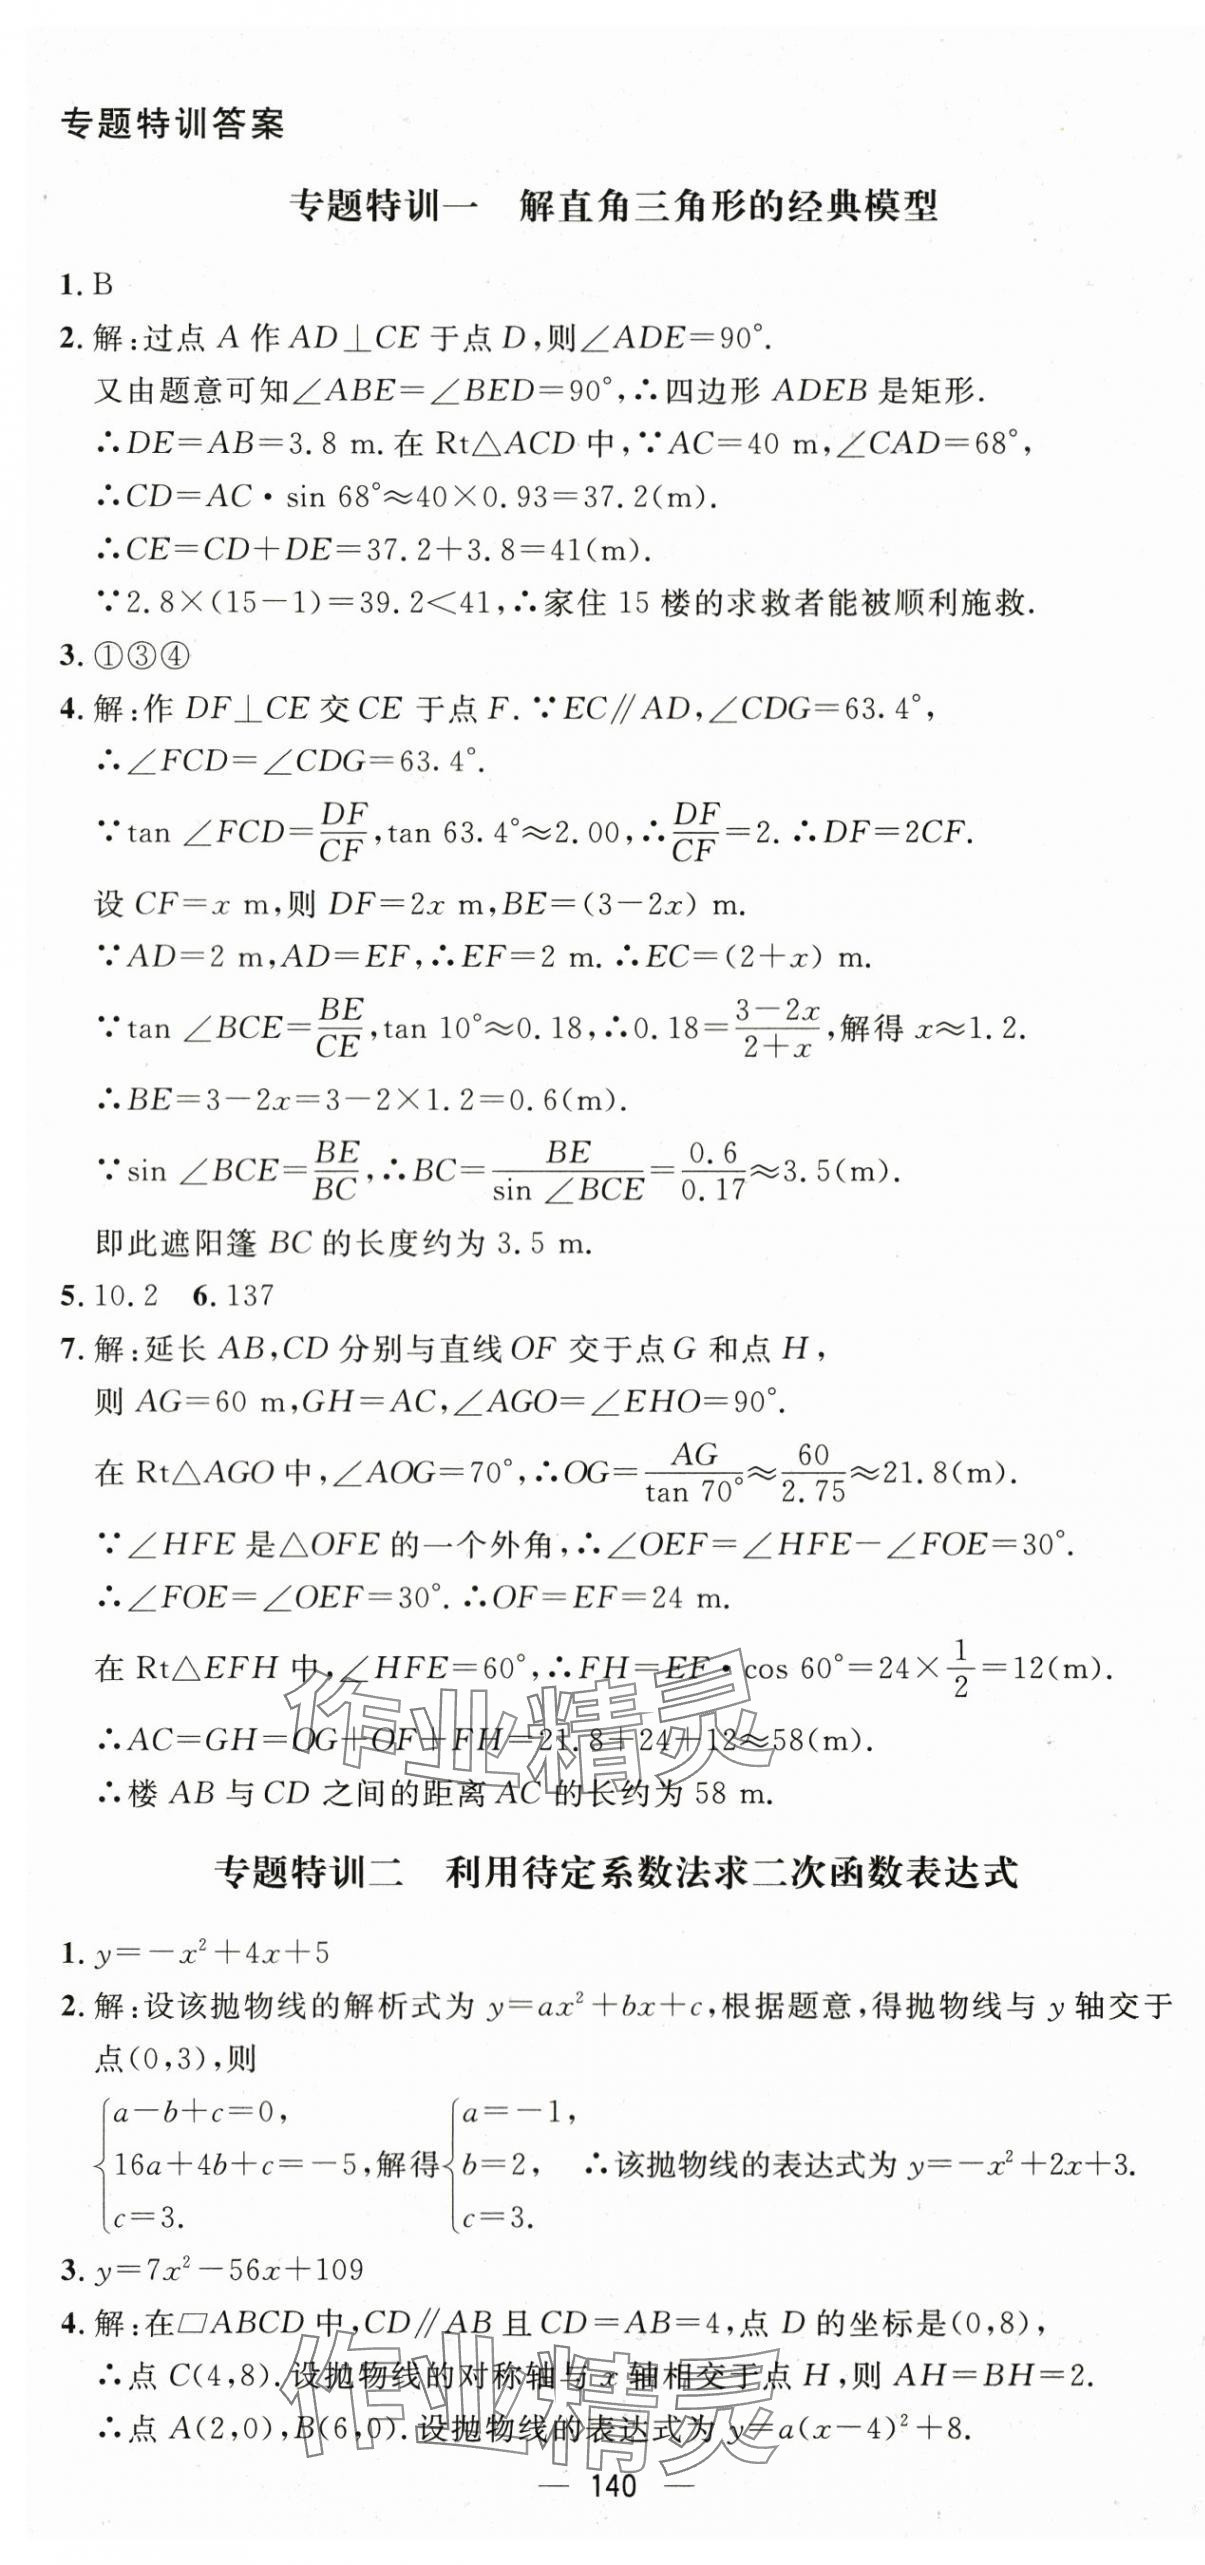 专题特训答案
专题特训一 解直角三角形的经典模型
1. B
2. 解:过点 A 作 AD⊥CE 于点 D,则∠ADE=90°.
又由题意可知∠ABE=∠BED=90°,∴四边形 ADEB 是矩形.
∴DE=AB=3.8 m. 在 Rt△ACD 中,∵AC=40 m,∠CAD=68°,
∴CD=AC·sin 68°≈40×0.93=37.2(m).
∴CE=CD+DE=37.2+3.8=41(m).
∵2.8×(15-1)=39.2<41,∴家住 15 楼的求救者能被顺利施救.
3. ①③④
4. 解:作 DF⊥CE 交 CE 于点 F. ∵EC∥AD,∠CDG=63.4°,
∴∠FCD=∠CDG=63.4°.
∵tan ∠FCD=DF/CF,tan 63.4°≈2.00,∴DF/CF=2. ∴DF=2CF.
设 CF=x m,则 DF=2x m,BE=(3-2x) m.
∵AD=2 m,AD=EF,∴EF=2 m. ∴EC=(2+x) m.
∵tan ∠BCE=BE/CE,tan 10°≈0.18,∴0.18=(3-2x)/(2+x),解得 x≈1.2.
∴BE=3-2x=3-2×1.2=0.6(m).
∵sin ∠BCE=BE/BC,∴BC=BE/sin ∠BCE=0.6/0.17≈3.5(m).
即此遮阳篷 BC 的长度约为 3.5 m.
5. 10.2 6. 137
7. 解:延长 AB,CD 分别与直线 OF 交于点 G 和点 H,
则 AG=60 m,GH=AC,∠AGO=∠EHO=90°.
在 Rt△AGO 中,∠AOG=70°,∴OG=AG/tan 70°≈60/2.75≈21.8(m).
∵∠HFE 是△OFE 的一个外角,∴∠OEF=∠HFE-∠FOE=30°.
∴∠FOE=∠OEF=30°. ∴OF=EF=24 m.
在 Rt△EFH 中,∠HFE=60°,∴FH=EF·cos 60°=24×1/2=12(m).
∴AC=GH=OG+OF+FH=21.8+24+12≈58(m).
∴楼 AB 与 CD 之间的距离 AC 的长约为 58 m.
专题特训二 利用待定系数法求二次函数表达式
1. y=-x²+4x+5
2. 解:设该抛物线的解析式为 y=ax²+bx+c,根据题意,得抛物线与 y 轴交于
点(0,3),则
{a-b+c=0, {a=-1,
16a+4b+c=-5,解得 b=2, ∴该抛物线的表达式为 y=-x²+2x+3.
c=3. c=3.
3. y=7x²-56x+109
4. 解:在□ABCD 中,CD∥AB 且 CD=AB=4,点 D 的坐标是(0,8),
∴点 C(4,8). 设抛物线的对称轴与 x 轴相交于点 H,则 AH=BH=2.
∴点 A(2,0),B(6,0). 设抛物线的表达式为 y=a(x-4)²+8.
— 140 —
作业精灵
作业精灵